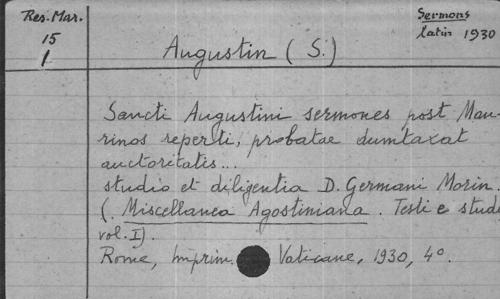 Res. Mar.
15
1
Sermons
latin 1930
Augustin (S.)
Sancti Augustini sermones post Mau-
rinos reperti, probatae dumtaxat
auctoritatis...
studio et diligentia D. Germani Morin.
(. Miscellanea Agostiniana. Testi e studi
vol. I).
Rome, Imprim. Vaticane, 1930, 4º.